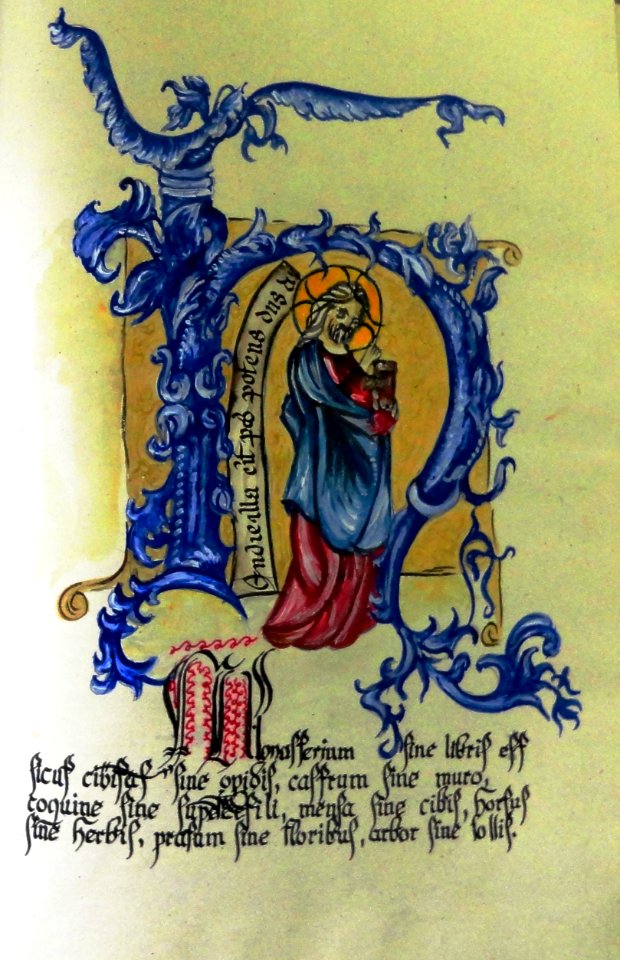 potens dns
Monasterium sine libris est
sicut civitas sine opidis, castrum sine muro,
coquine sine mensa sine cibis, hortus
sine herbis, pratum sine floribus, arbor sine follis.